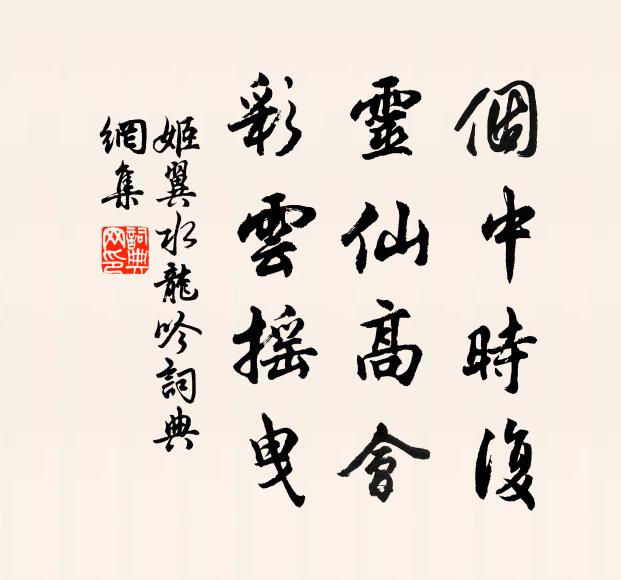 個中時復
靈仙高會
彩雲摇曳
姬翼水龍吟詞典
網集
詞典
网印